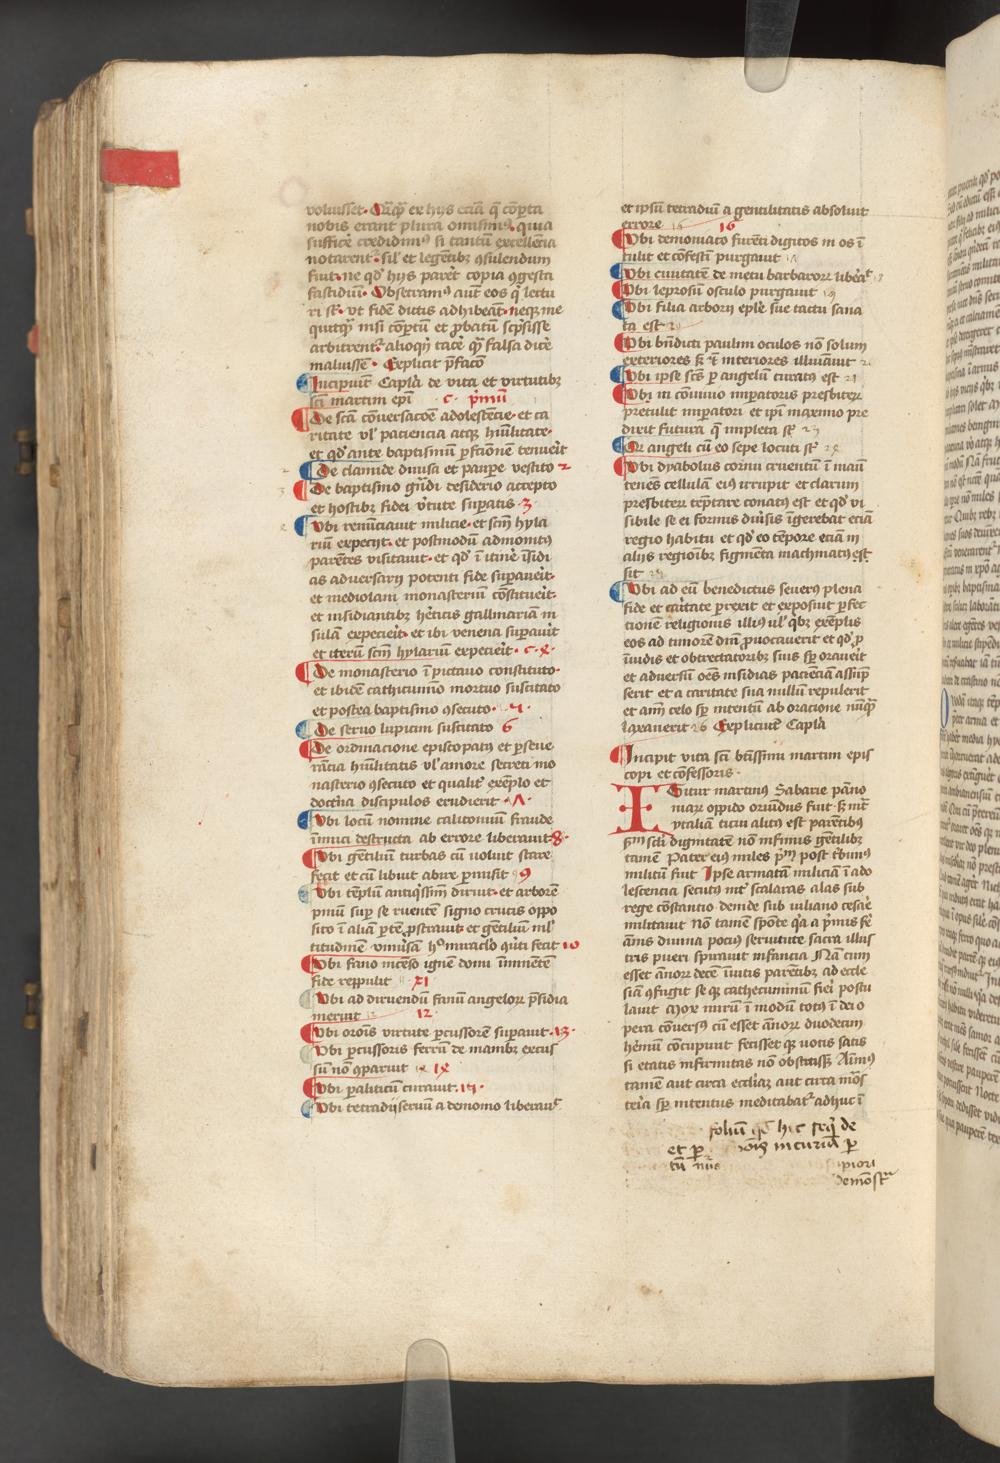 voluisset. Q̄q̄ ex hijs eciā q̄ cōpta
nobis erant plura omisimꝰ. quia
sufficē credidimꝰ si tantū excellēcia
notarent. sil̄ et legētibꝫ ꝯsulendum
fuit. ne qd̓ hijs parēt copia ꝯgesta
fastidiū. Obsecramꝰ aūt eos q̄ lectu
ri st̄. vt fidē dictis adhibeāt. neqꝫ me
quicq̄ nisi cōptū et ꝓbatū scp̄sisse
arbitrent̉ alioqn̄ tacē q̄ falsa dicē
maluissē. Explicit p̄facō
Incipiūt Capl̄a de vita et virtutibꝫ
sc̄i martini epī c. p̄mū
De sc̄ā cōuersacōe adolescēcie. et ca
ritate vl̓ paciencia atqꝫ hūilitate.
et qd̓ ante baptismū ꝑfctiōne tenuerit
De clamide diuisa et paupe vestito 2
De baptismo gn̄di desiderio accepto
et hostibꝫ fidei v̓tute suꝑatis 3
Vbi renūciauit milicie. et sc̄m hyla
riū expecijt. et postmodū admonitꝰ
parētes visitauit. et qd̓ ī itinē īsidi
as adversarij potenti fide suꝑauerit.
et mediolani monasteriū cōstituerit.
et insidiantibꝫ h̓eticis gallinariā in
sulā expecierit. et ibi venena suꝑauit
et iterū sc̄m hylariū expecierit. c. 4.
De monasterio ī pictauo constituto.
et ibidē cathicumio mortuo suscitato
et postea baptismo ꝯsecuto. 5.
De seruo lupicini suscitato 6
De ordinacione episcopatꝰ et ꝑseue
rācia hūilitatis vl̓ amore secreti mo
nasterio ꝯsecuto et qualit̓ exēplo et
doctīa discipulos erudierit .7.
Vbi locū nomine calitoniū fraude
inimici destructa ab errore liberauit 8.
Vbi gētiliū turbas cū voluit stare
fecit et cū libuit abire ꝑmisit 9
Vbi tēplū antiq̓ssimū diruit. et arborē
pinū suꝑ se ruentē signo crucis oppo
sito ī aliā ꝑtē ꝓstrauit et gētiliū ml̓
titudinē vniūsā h̓ miracl̓o ꝯ̓uti fecit 10
Vbi fano incēso ignē domi īminētē
fide reppulit 11 XI
Vbi ad diruendū fanū angelorꝫ p̄sidia
meruit 12 12.
Vbi orōis virtute ꝑcussorē suꝑauit .13.
Vbi ꝑcussoris ferrū de manibꝫ excus
sū nō ꝯparuit 14 14
Vbi ꝑaliticū curauit. 15.
Vbi tetradij seruū a demonio liberau̓
et ipsū tetradiū a gentilitatis absoluit
errore 16 16
Vbi demoniaco furēti digitos in os ī
tulit et cōfestī purgauit 17
Vbi ciuitatē de metu barbarorꝫ liberat̉
Vbi leprosū osculo purgauit 19
Vbi filia arborij epl̄e sue tactu sana
ta est 20
Vbi bn̄dicti paulini oculos nō solum
exteriores sꝫ et interiores illuīauit
Vbi ipse sc̄s ꝑ angelū curatꝰ est 21
Vbi in cōuiuio imꝑatoris presbiterꝫ
pretulit imꝑatori et ipī maximo pre
dixit futura q̄ impleta st̄ 23
Qꝛ angeli cū eo sepe locuti st̄ 24
Vbi dyabolus cornu cruentū ī manū
tenēs cellulā eiꝰ irrupit et clarum
presbiterꝫ tēptare conatꝰ est et qd̓ vi
sibile se ei formis diūsis īgerebat eciā
regio habitu et qd̓ eo tēpore eciā in
alijs regiōibꝫ figmēta machinatꝰ est
sit 25
Vbi ad eū benedictus seuerꝰ plena
fide et cāitate ꝑrexit et exposuit ꝑfec
tionē religionis illiꝰ ul̓ qbꝫ exēplis
eos ad timorē dn̄i ꝓuocauerit et qd̓ ꝓ
īuidis et obtrectatoribꝫ suis sꝑ orauerit
et aduersū oēs insidias paciēciā assūp
serit et a caritate sua nullū repulerit
et anī celo sꝑ intentū ab oracione nūq̄
laxauerit 26 Expliciūt Capl̄a
Incipit vita sc̄i btīssimi martini epis
copi et cōfessoris.
Igitur martinꝰ Sabarie pāno
niarꝫ oppido oriūdus fuit sꝫ int̄
ytaliā ticini alitꝰ est parētibꝰ
s̄m sc̄li dignitatē nō infimis gētilibꝫ
tamē Pater eiꝰ miles p̄m̄ post t̓bunꝰ
militū fuit Ipse armatā miliciā ī ado
lescencia secutꝰ int̄ scolaras alas sub
rege cōstantio deinde sub iuliano cesarē
militauit Nō tamē spōte q̓a a p̄mis fē
ānis diuina pociꝰ seruitute sacra illus
tris pueri spirauit infancia Nā cum
esset ānorꝫ decē īuitis parētibꝫ ad eccle
siā ꝯfugit seqꝫ cathecuminū fiei postu
lauit Mox mirū ī modū totꝰ ī dei o
pera cōuersꝰ cū esset ānorꝫ duodecim
hēmū cōcupiuit fecisset qꝫ uotis satis
si etatis infirmitas nō obstitissꝫ Animꝰ
tamē aut circa eccl̄iaꝫ aut circa mōs
teria sꝑ intentus meditabat̉ adhuc ī
foliū qd̓ hic seq̄ de
et ꝑ incuriā ꝑ
piori
demōstr̄